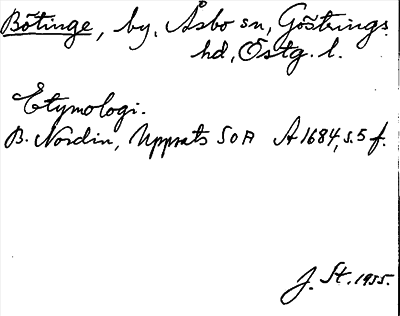 Bötinge, by, Åsbo sn, Göstrings
hd, Östg. l.
Etymologi.
B. Nordin, Uppsats SOA A 1684, s. 5 f.
J. St. 1955.